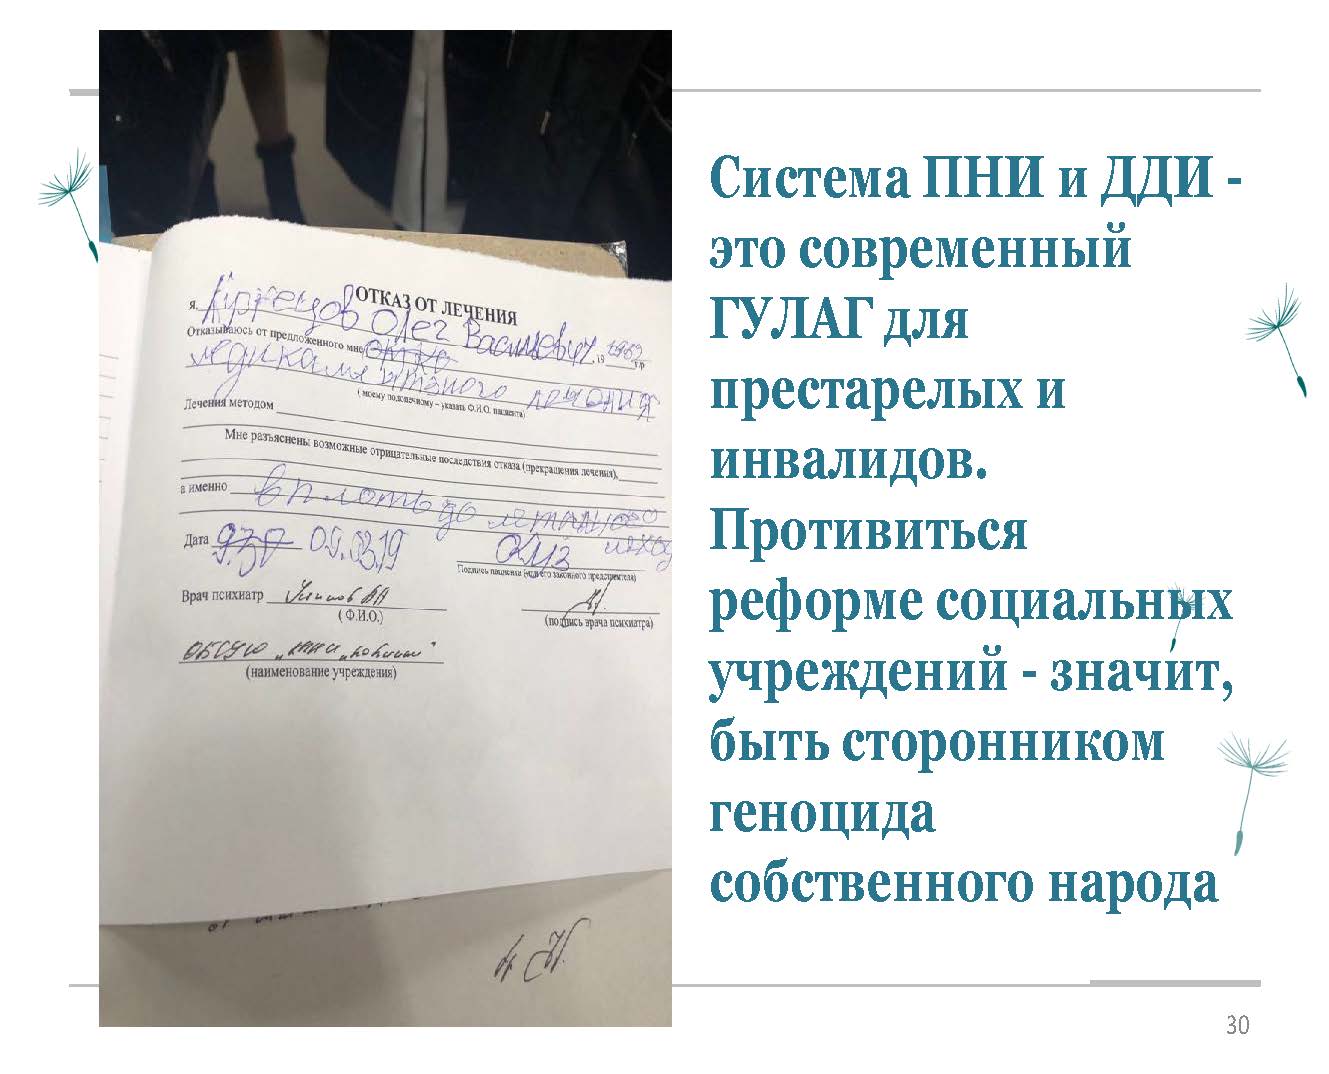 ОТКАЗ ОТ ЛЕЧЕНИЯ
я, Олег Васильевич, 19
Отказываюсь от предложенного мне
медикаментозного лечения
( моему подопечному – указать Ф.И.О. пациента)
Лечения методом
Мне разъяснены возможные отрицательные последствия отказа (прекращения лечения),
а именно вплоть до летального
исход
Дата 09.03.19
Подпись пациента (или его законного представителя)
Врач психиатр
( Ф.И.О.)
(подпись врача психиатра)
(наименование учреждения)
Система ПНИ и ДДИ -
это современный
ГУЛАГ для
престарелых и
инвалидов.
Противиться
реформе социальных
учреждений - значит,
быть сторонником
геноцида
собственного народа
30